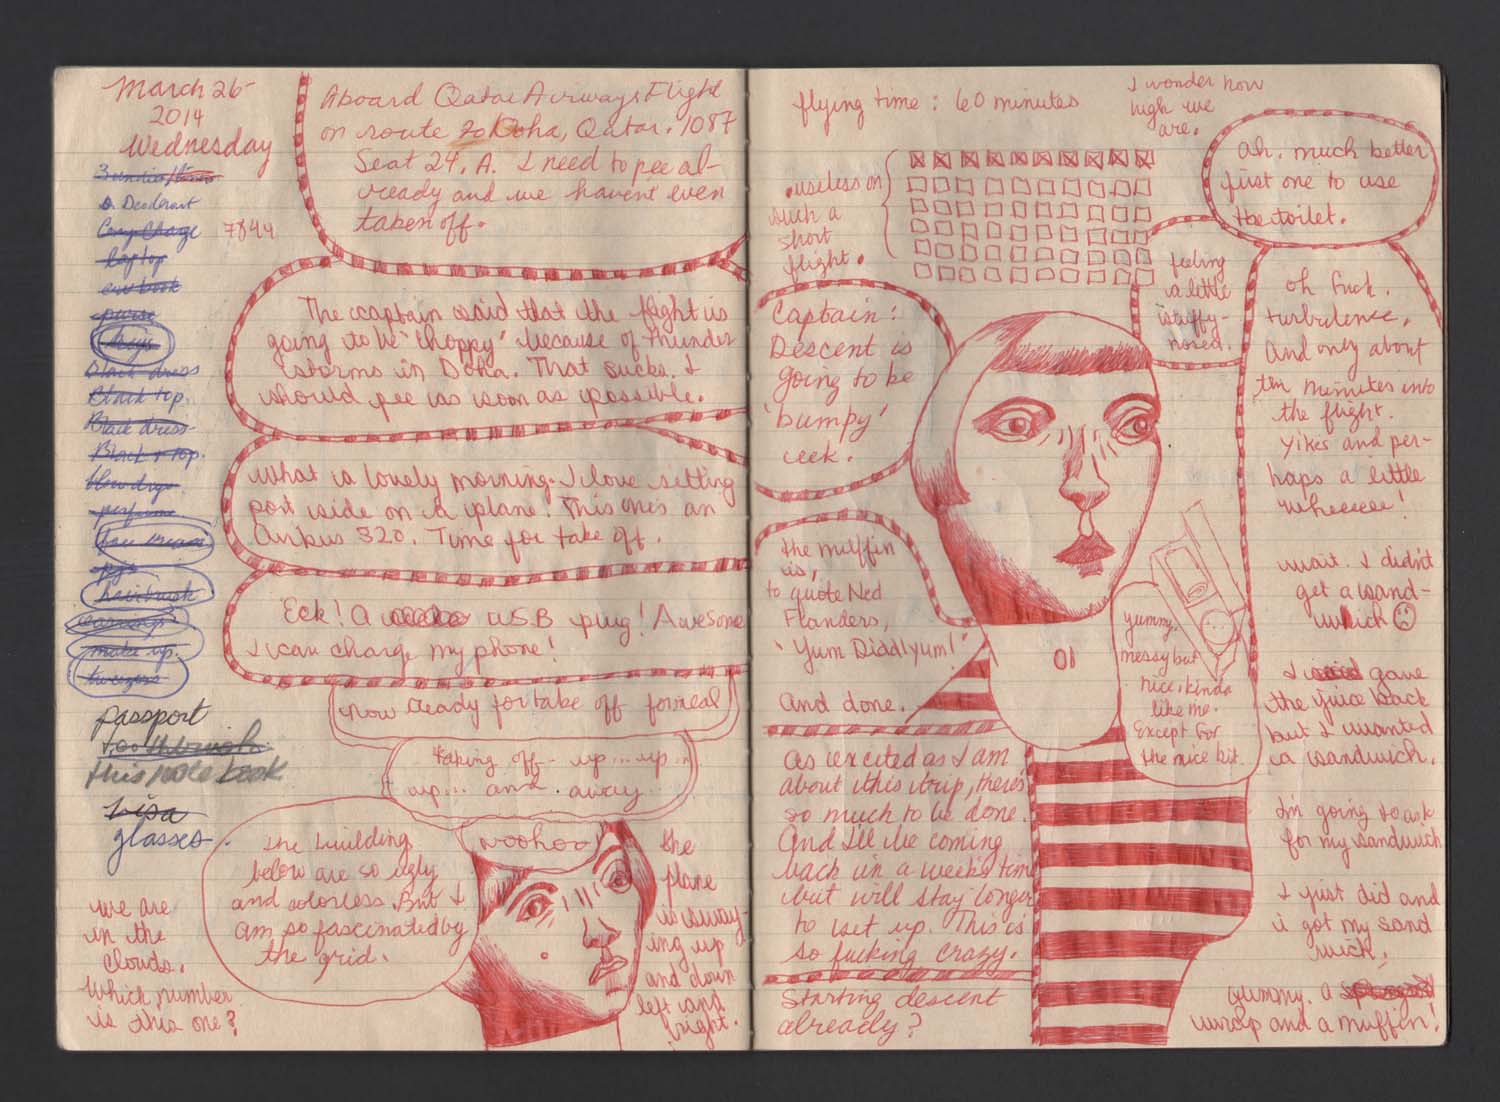 March 26
2014
Wednesday
Deodorant
7844
laptop
purse
Black dress
Black top
Black dress
Black top
blow dryer
perfume
pjs
hairbrush
earrings
make up
tweezers
passport
toothbrush
this notebook
Visa
glasses.
we are
in the
clouds.
Which number
is this one?
Aboard Qatar Airways Flight
on route to Doha, Qatar. 1087
Seat 24, A. I need to pee al-
ready and we havent even
taken off.
The captain said that the flight is
going to be "choppy" because of thunder
storms in Doha. That sucks. I
should pee as soon as possible.
What a lovely morning. I love sitting
port side on a plane! This one's an
Airbus 320. Time for take off.
Eek! A USB plug! Awesome
I can charge my phone!
now ready for take off for real
taking off - up... up...
up... and. away
woohoo
The building
below are so ugly
and colorless. But I
am so fascinated by
the grid.
the
plane
is sway-
ing up
and down
left and
right.
flying time: 60 minutes
I wonder how
high we
are.
useless on
such a
short
flight.
Ah, much better
first one to use
the toilet.
feeling
a little
stuffy-
nosed.
Captain:
Descent is
going to be
'bumpy'
eek.
oh fuck.
turbulence,
And only about
ten minutes into
the flight.
Yikes and per-
haps a little
wheeeee!
the muffin
is,
to quote Ned
Flanders,
'Yum Diddlyum!'
And done.
01
yummy.
messy but
nice, kinda
like me.
Except for
the nice bit.
wait. I didn't
get a sand-
wich
I gave
the juice back
but I wanted
a sandwich.
I'm going to ask
for my sandwich
I just did and
i got my sand
wich.
yummy. a
wrap and a muffin!
as excited as I am
about this trip, there's
so much to be done.
And I'll be coming
back in a weeks time
but will stay longer
to set up. This is
so fucking crazy.
Starting descent
already?